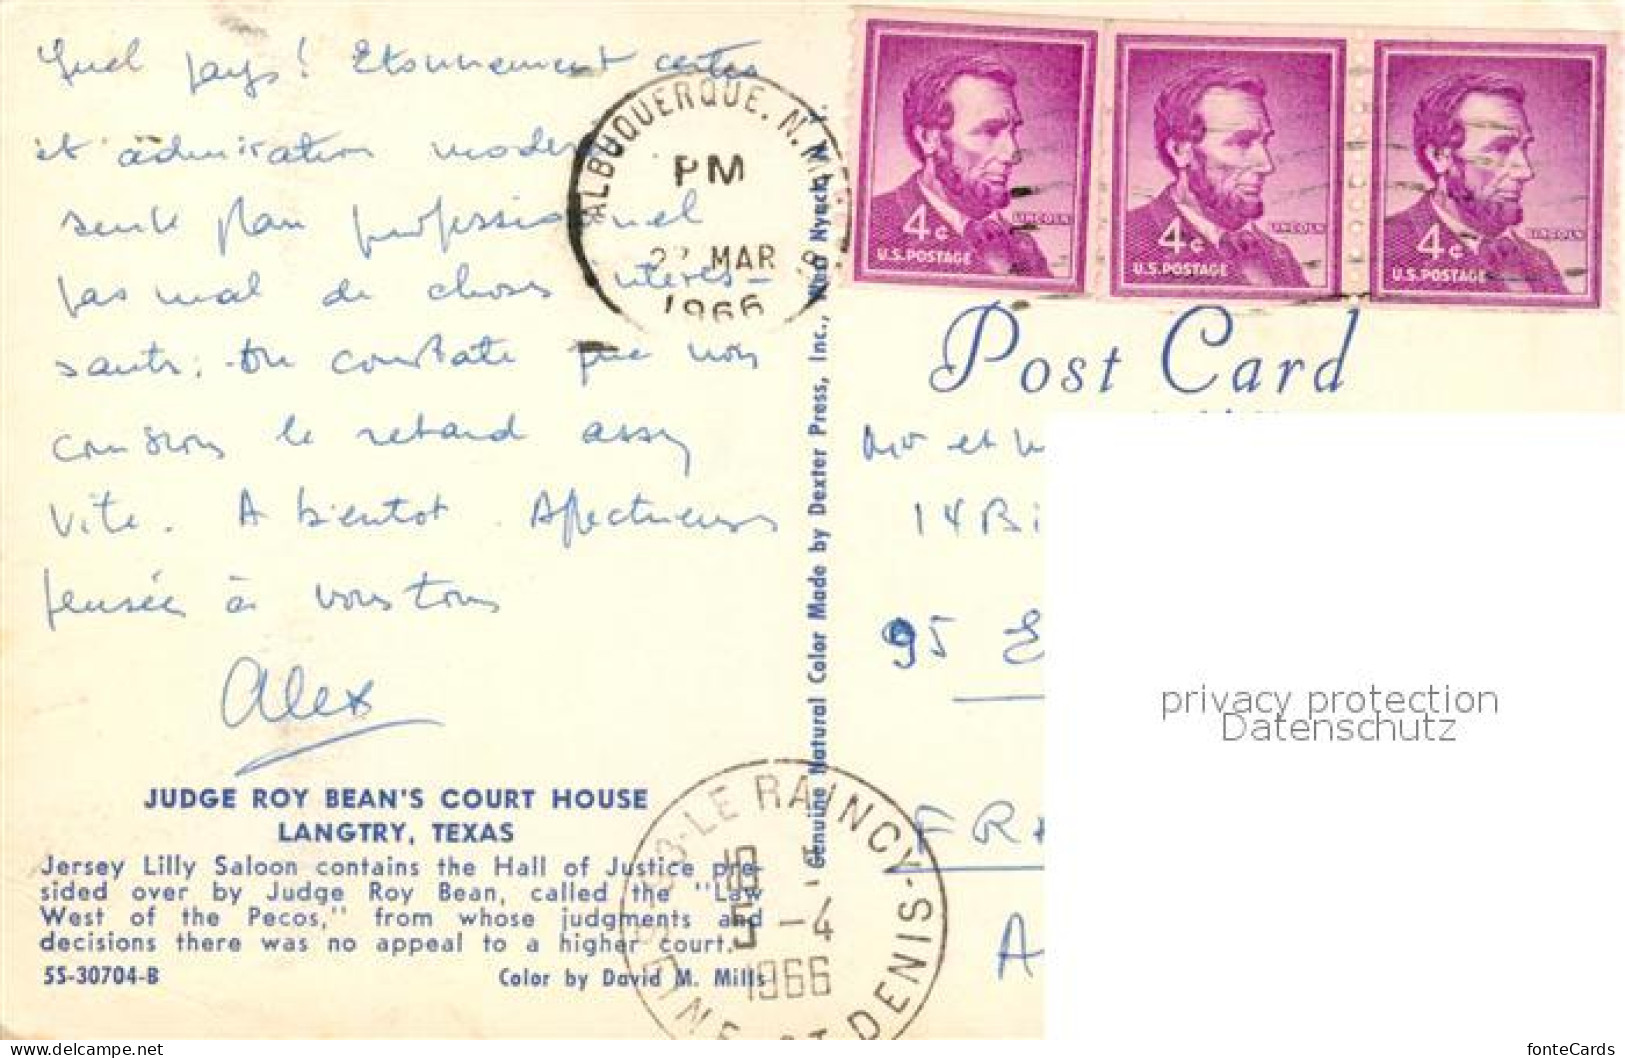 Quel pays! Etonnement certes
et admiration modérée
seul plan professionnel
pas mal de choses intéres-
sants; On constate que nous
comblons le retard assez
vite. A bientot. Affectueuses
pensées à vous tous
Alex
ALBUQUERQUE, N. MEX.
PM
27 MAR
1966
4¢
U.S. POSTAGE
LINCOLN
4¢
U.S. POSTAGE
LINCOLN
4¢
U.S. POSTAGE
LINCOLN
Post Card
Genuine Natural Color Made by Dexter Press, Inc., West Nyack, N.Y.
Mr et M
14 Bi
95 E
FRA
A
privacy protection
Datenschutz
JUDGE ROY BEAN'S COURT HOUSE
LANGTRY, TEXAS
Jersey Lilly Saloon contains the Hall of Justice pre-
sided over by Judge Roy Bean, called the "Law
West of the Pecos," from whose judgments and
decisions there was no appeal to a higher court.
5S-30704-B
Color by David M. Mills
LE RAINCY -
5 -4
1966
SEINE ST DENIS
delcampe.net
fonteCards